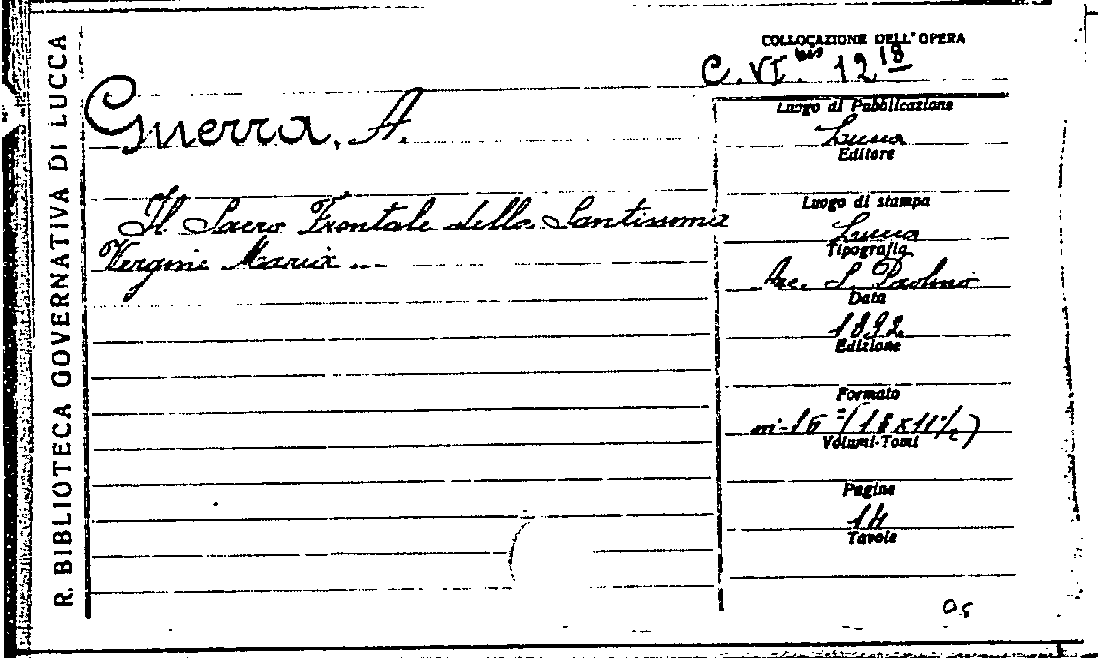 R. BIBLIOTECA GOVERNATIVA DI LUCCA
COLLOCAZIONE DELL'OPERA
C. VI. bis 12 18
Guerra, A.
Il Sacro Frontale della Santissima
Vergine Maria ...
Luogo di Pubblicazione
Lucca
Editore
Luogo di stampa
Lucca
Tipografia
Arc. S. Paolino
Data
1892
Edizione
Formato
in-16º (18 x 11 1/2)
Volumi-Tomi
Pagine
14
Tavole